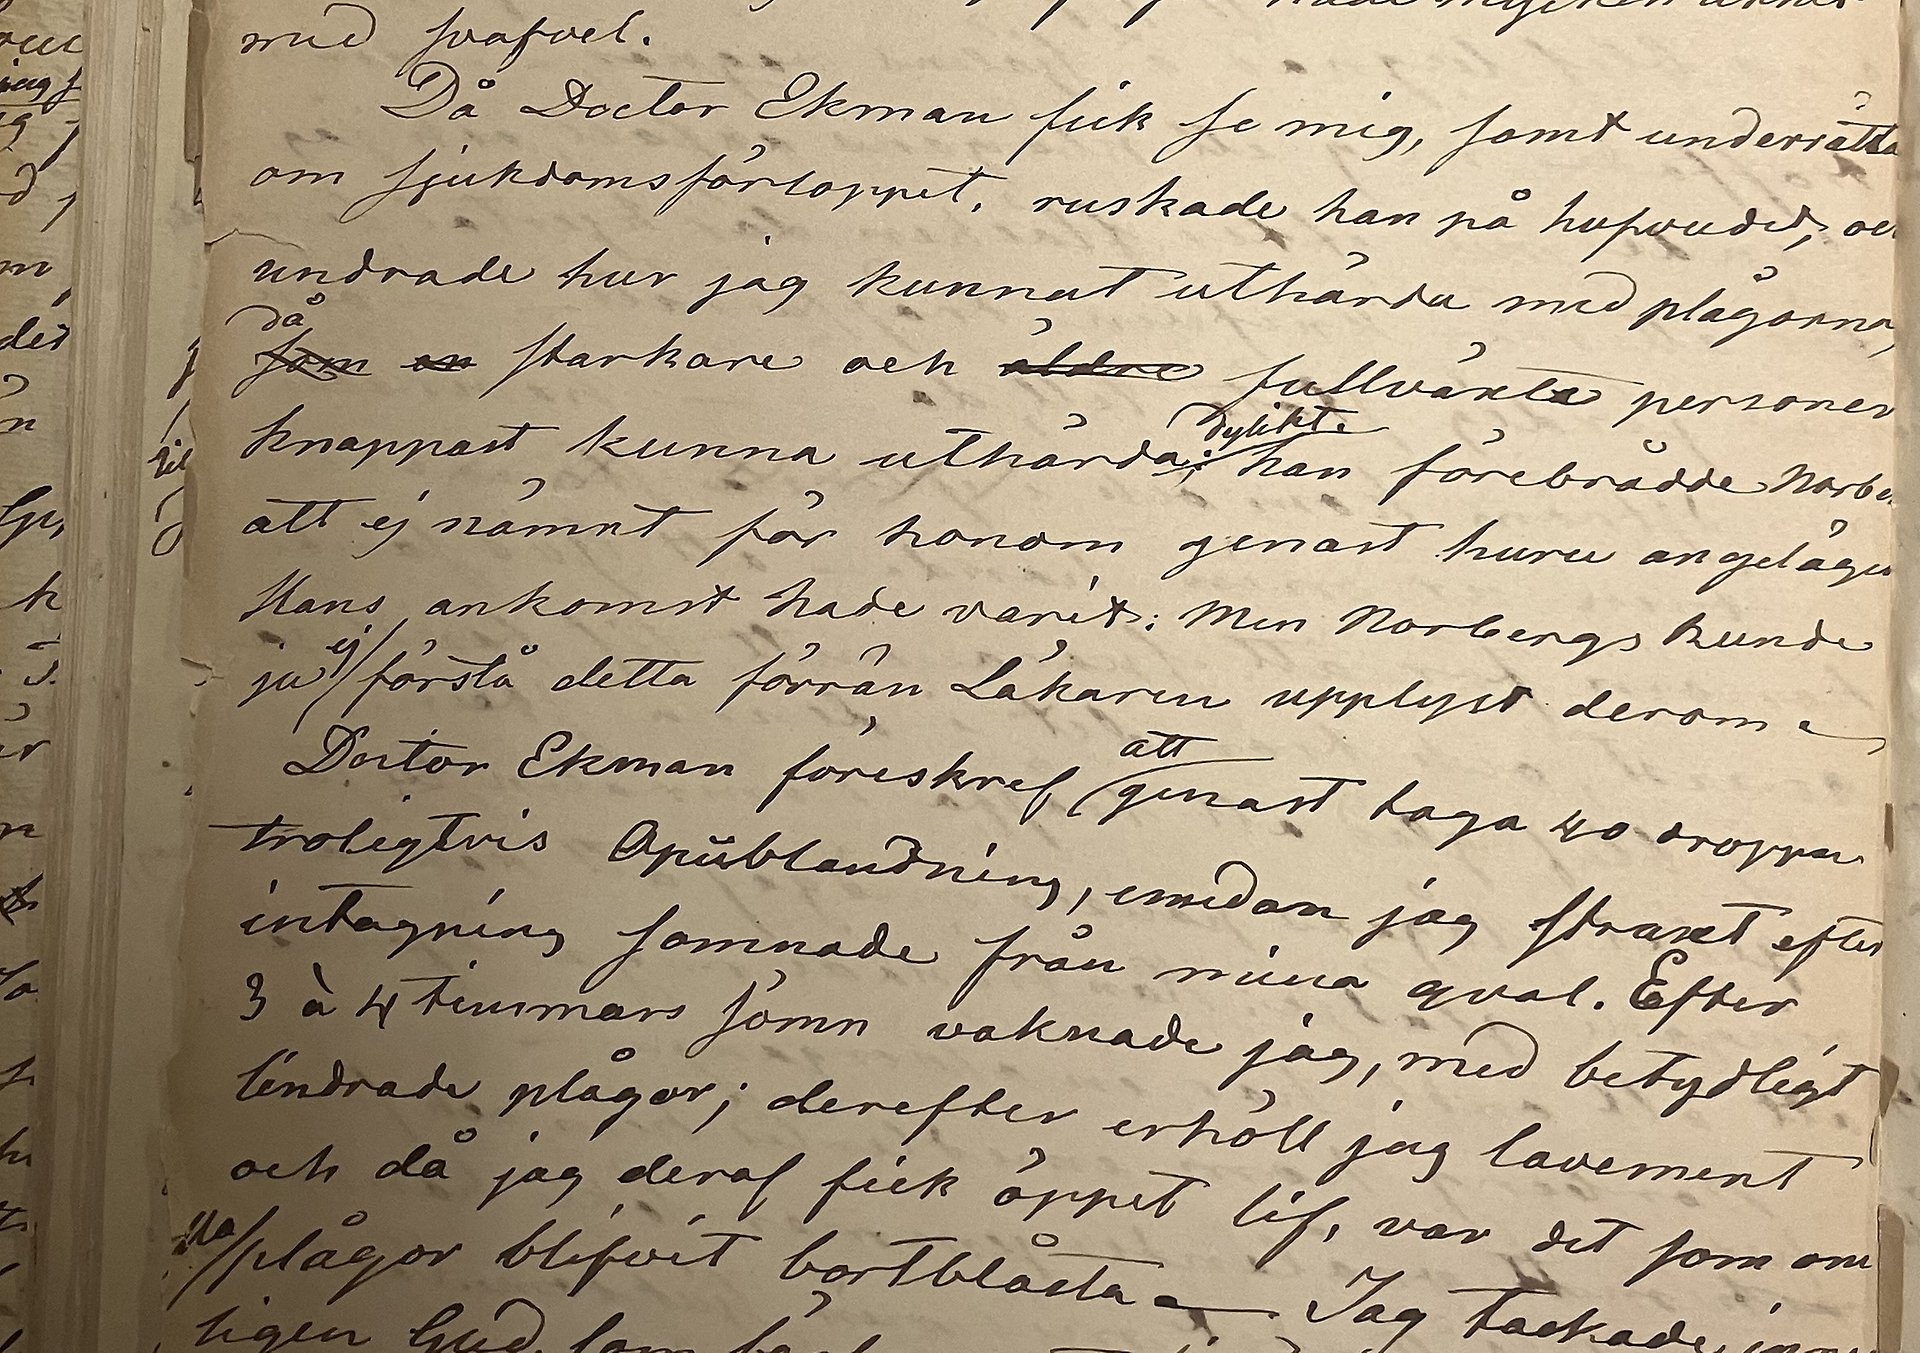 med svafvel.
Då Doctor Ekman fick se mig, samt underrätta
om sjukdomsförloppet, ruskade han på hufvudet, oc
undrade hur jag kunnat uthärda med plågorna,
då
som en starkare och äldre fullväxta personer
dylikt.
knappast kunna uthärda; han förebrådde Norbe
att ej nämnt för honom genast huru angeläge
Hans ankomst hade varit: Men Norbergs kunde
ju ej förstå detta förrän Läkaren upplyst derom.
att
Doctor Ekman föreskref genast taga 40 droppar
troligtvis Opiiblandning, emedan jag straxt efter
intagning somnade från mina qval. Efter
3 à 4 timmars sömn vaknade jag, med betydligt
lindrade plågor; derefter erhöll jag lavement
och då jag deraf fick öppet lif, var det som om
plågor blifvit bortblåsta — Jag tackade
ligen Gud, som